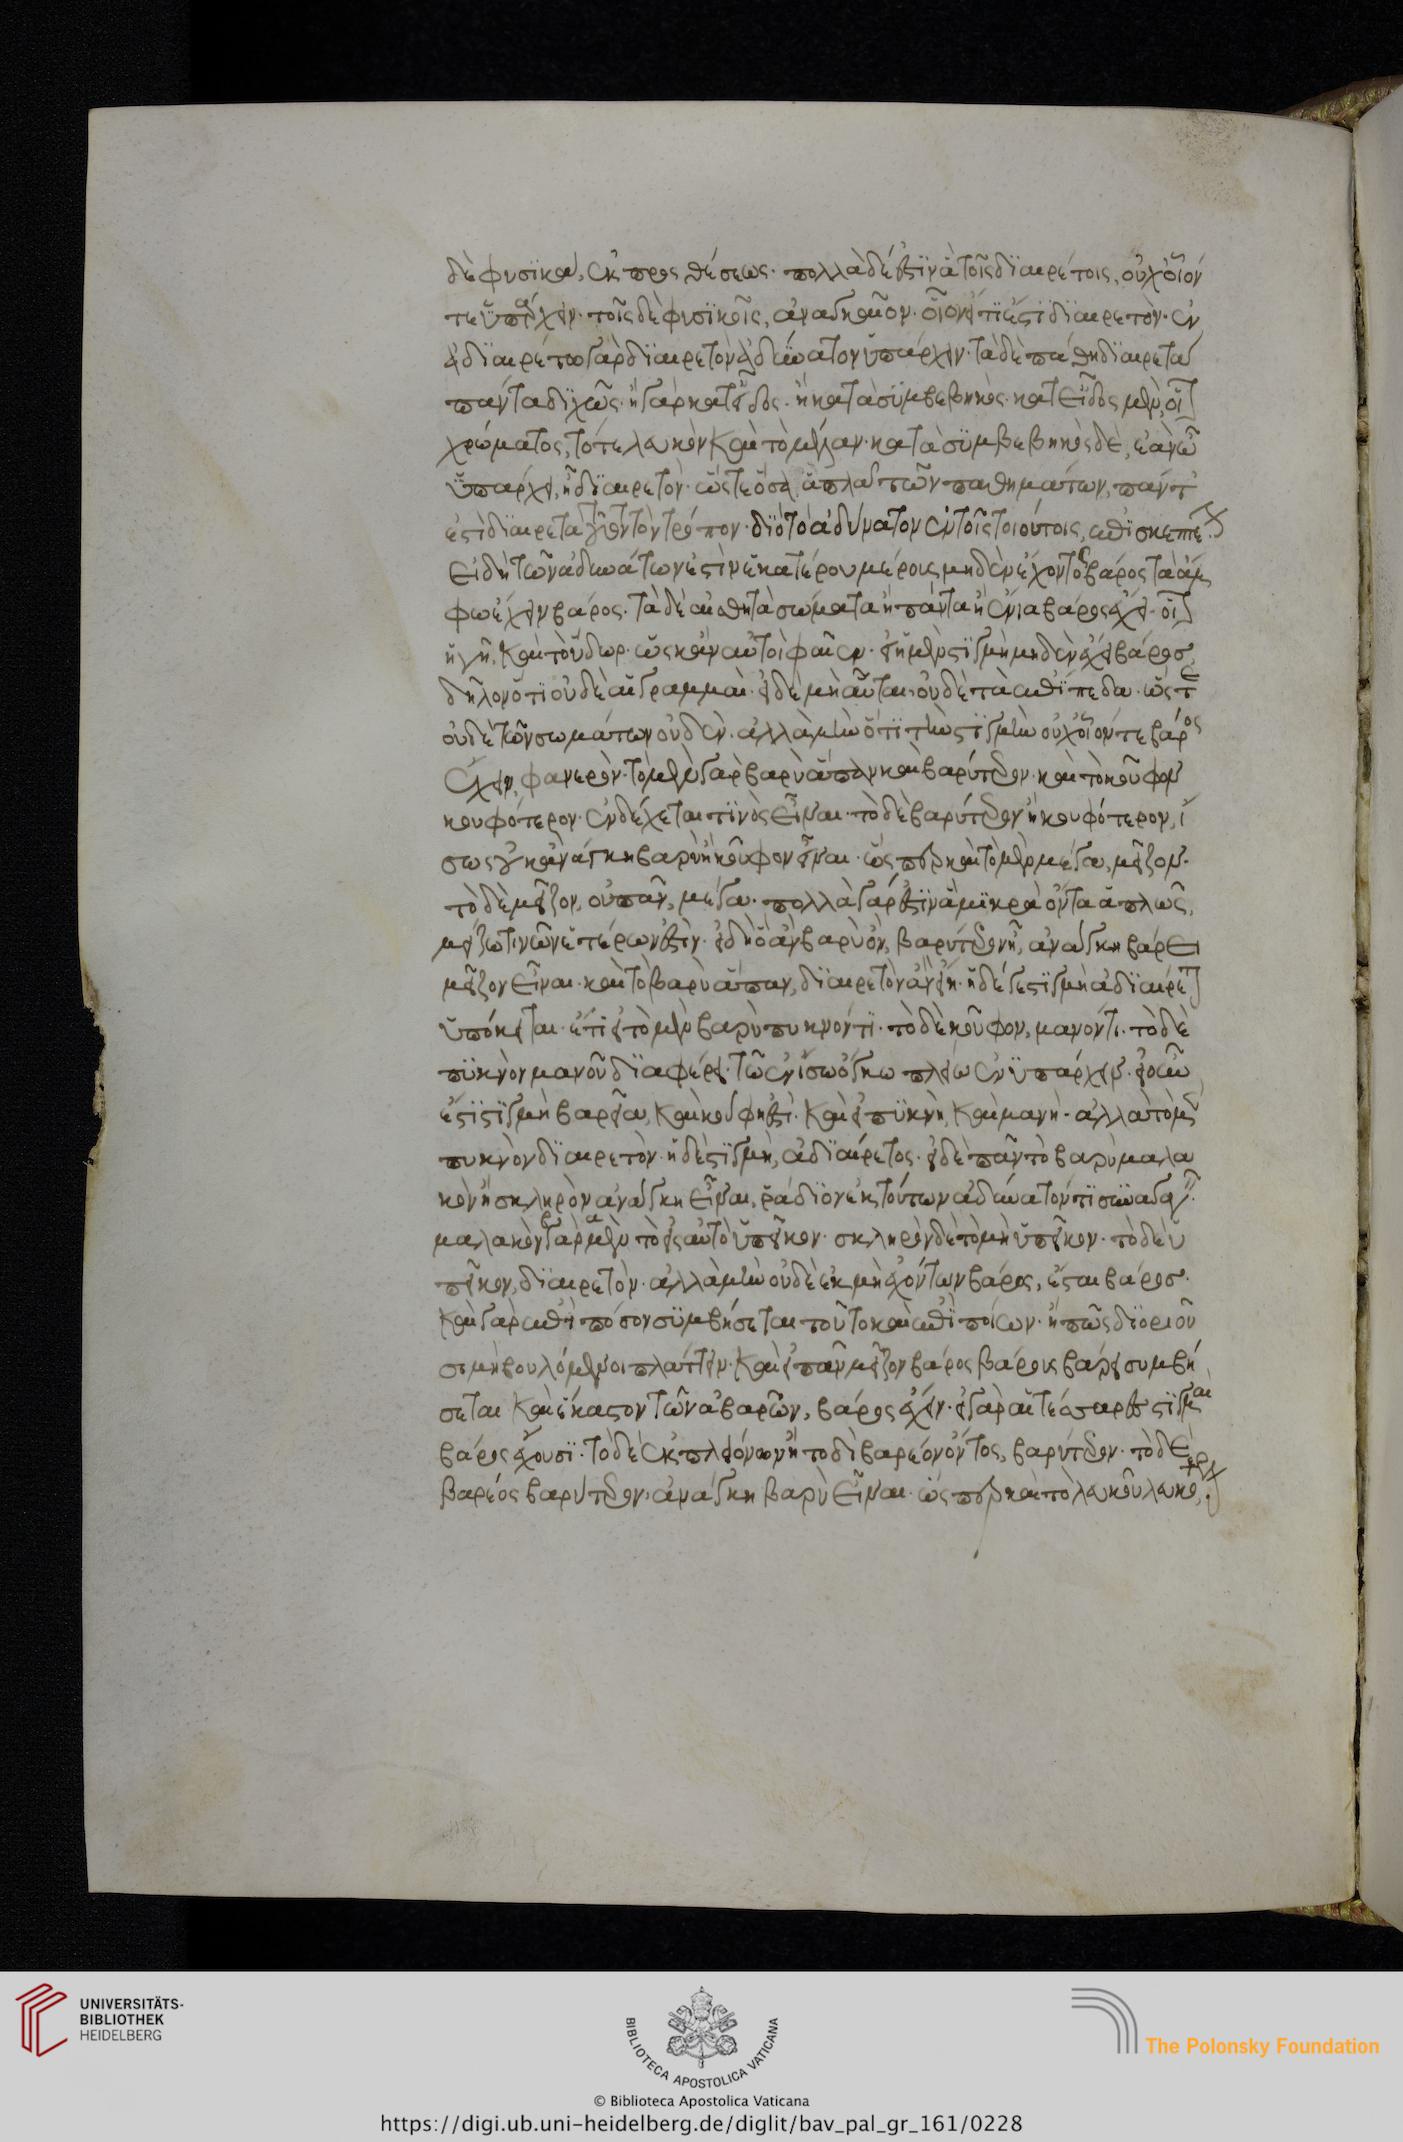 δὲ φυσϊκὰ, ἐκ προς θέσεως· πολλὰ δέ ἐστϊν ἃ τοῖς διαιρέτοις, οὐχ οἷόν
τε ὑπάρχειν· τοῖς δὲ φυσϊκοῖς, ἀναγκαῖον· οἷον εἴ τϊ ἐστϊ διαιρετὸν· ἐν
ἀδιαιρέτω γὰρ διαιρετὸν ἀδύνατον ὑπάρχειν· τὰ δὲ πάθη διαιρετὰ
πάντα διχῶς· ἢ γὰρ κατ εἶδος· ἢ κατὰ συμβεβηκὸς· κατ εἶδος μὲν, οἷον
χρώματος, τό τε λευκὸν καὶ τὸ μέλαν· κατὰ συμβεβηκὸς δὲ, ἐὰν ὧ
ὑπάρχει, ἦ διαιρετὸν· ὥς τε ὅσα ἁπλᾶ τῶν παθημάτων, πάντ
ἐστὶ διαιρετὰ τοῦτον τὸν τρόπον· διὸ τὸ ἀδύνατον ἐν τοῖς τοιούτοις, ἐπισκεπτέον·
εἰ δὴ τῶν ἀδυνάτων ἐστὶν ἑκατέρου μέρους μηδὲν ἔχοντος βάρος τὰ ἄμ
φω ἔχειν βάρος· τὰ δὲ αἰσθητὰ σώματα ἢ πάντα ἢ ἔνια βάρος ἔχει· οἷον
ἡ γῆ, καὶ τὸ ὕδωρ· ὡς κἂν αὐτοὶ φαῖεν· εἰ ἡ μὲν στϊγμὴ μηδὲν ἔχει βάρος
δῆλον ὅτϊ οὐδὲ αἱ γραμμαὶ· εἰ δὲ μὴ αὗται· οὐδὲ τὰ ἐπίπεδα· ὥς τε
οὐδὲ τῶν σωμάτων οὐδὲν· ἀλλὰ μὴν ὅτϊ τὴν στϊγμὴν οὐχ οἷόν τε βάρος
ἔχειν, φανερὸν· τὸ μὲν γὰρ βαρὺ ἅπαν καὶ βαρύτερον· καὶ τὸ κοῦφον
κουφότερον· ἐνδέχεταί τϊνὸς εἶναι· τὸ δὲ βαρύτερον ἢ κουφότερον, ἴ
σως οὐκ ἀνάγκη βαρὺ ἢ κοῦφον εἶναι· ὥς περ καὶ τὸ μὲν μέγα, μεῖζον·
τὸ δὲ μεῖζον, οὐ πᾶν, μέγα· πολλὰ γάρ ἐστϊν ἃ μϊκρὰ ὄντα ἁπλῶς,
μείζω τινῶν ἑτέρων ἐστὶν· εἰ δὴ ὃ ἂν βαρὺ ὂν, βαρύτερον ἦ, ἀνάγκη βάρει
μεῖζον εἶναι· καὶ τὸ βαρὺ ἅπαν, διαιρετὸν ἂν εἴη· ἡ δέ γε στϊγμὴ ἀδιαίρετον
ὑπόκειται· ἔτϊ εἰ τὸ μὲν βαρὺ πυκνόν τϊ· τὸ δὲ κοῦφον, μανόν τι· τὸ δὲ
πϋκνὸν μανοῦ διαφέρει· τῶ ἐν ἴσω ὄγκω πλείω ἐνϋπάρχειν· εἰ οὖν
ἐστϊ στϊγμὴ βαρεῖα, καὶ κούφη ἐστὶ· καὶ εἰ πϋκνὴ, καὶ μανὴ· ἀλλὰ τὸ μὲν
πυκνὸν διαιρετὸν· ἡ δὲ στϊγμὴ, ἀδιαίρετος· εἰ δὲ πᾶν τὸ βαρὺ μαλα
κὸν ἢ σκληρὸν ἀνάγκη εἶναι, ῥάδϊον ἐκ τούτων ἀδύνατόν τϊ συναγαγεῖν·
μαλακὸν μὲν γὰρ τὸ εἰς αὑτὸ ὑπεῖκον· σκληρὸν δὲ τὸ μὴ ὑπεῖκον· τὸ δὲ ὑ
πεῖκον, διαιρετὸν· ἀλλὰ μὴν οὐδὲ ἐκ μὴ ἐχόντων βάρος, ἔσται βάρος·
καὶ γὰρ ἐπὶ πόσον συμβήσεται τοῦτο καὶ ἐπὶ ποίων· ἢ πῶς διορϊοῦ
σι μὴ βουλόμενοι πλάττειν· καὶ εἰ πᾶν μεῖζον βάρος βάρους βάρει συμβή
σεται καὶ ἕκαστον τῶν ἀβαρῶν, βάρος ἔχειν· εἰ γὰρ αἱ τέσσαρες στϊγμαὶ
βάρος ἔχουσϊ· τὸ δὲ ἐκ πλειόνων ἢ τοδὶ βαρέος ὄντος, βαρύτερον· τὸ δὲ
βαρέος βαρύτερον, ἀνάγκη βαρὺ εἶναι· ὥς περ καὶ τὸ λευκοῦ λευκότερον